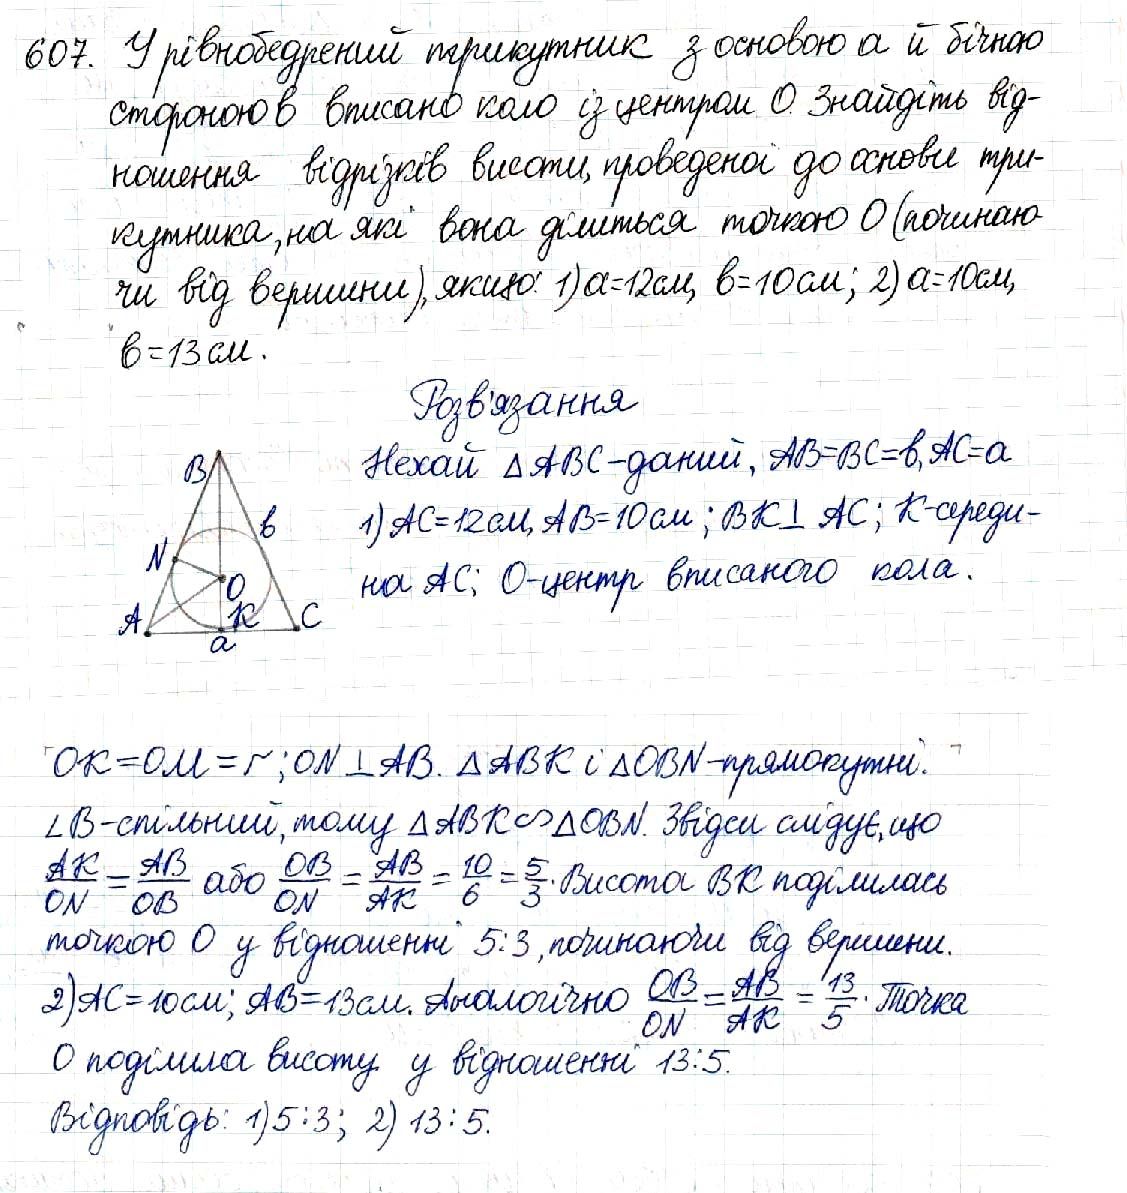 607. У рівнобедрений трикутник з основою a й бічною
стороною в вписано коло із центром О. Знайдіть від-
ношення відрізків висоти, проведеної до основи три-
кутника, на які вона ділиться точкою О (починаю-
чи від вершини), якщо: 1) a=12см, в=10см; 2) a=10см,
в=13см.
Розв'язання
Нехай △ABC-даний, AB=BC=в, AC=a
1) AC=12см, AB=10см; BK⊥AC; К-середи-
на AC; О-центр вписаного кола.
B
в
N
O
A
K
C
a
OK=OM=r; ON⊥AB. △ABK і △OBN-прямокутні.
∠B-спільний, тому △ABK∽△OBN. Звідси слідує, що
AK/ON = AB/OB або OB/ON = AB/AK = 10/6 = 5/3. Висота BK поділилась
точкою О у відношенні 5:3, починаючи від вершини.
2) AC=10см; AB=13см. Аналогічно OB/ON = AB/AK = 13/5. Точка
О поділила висоту у відношенні 13:5.
Відповідь: 1) 5:3; 2) 13:5.